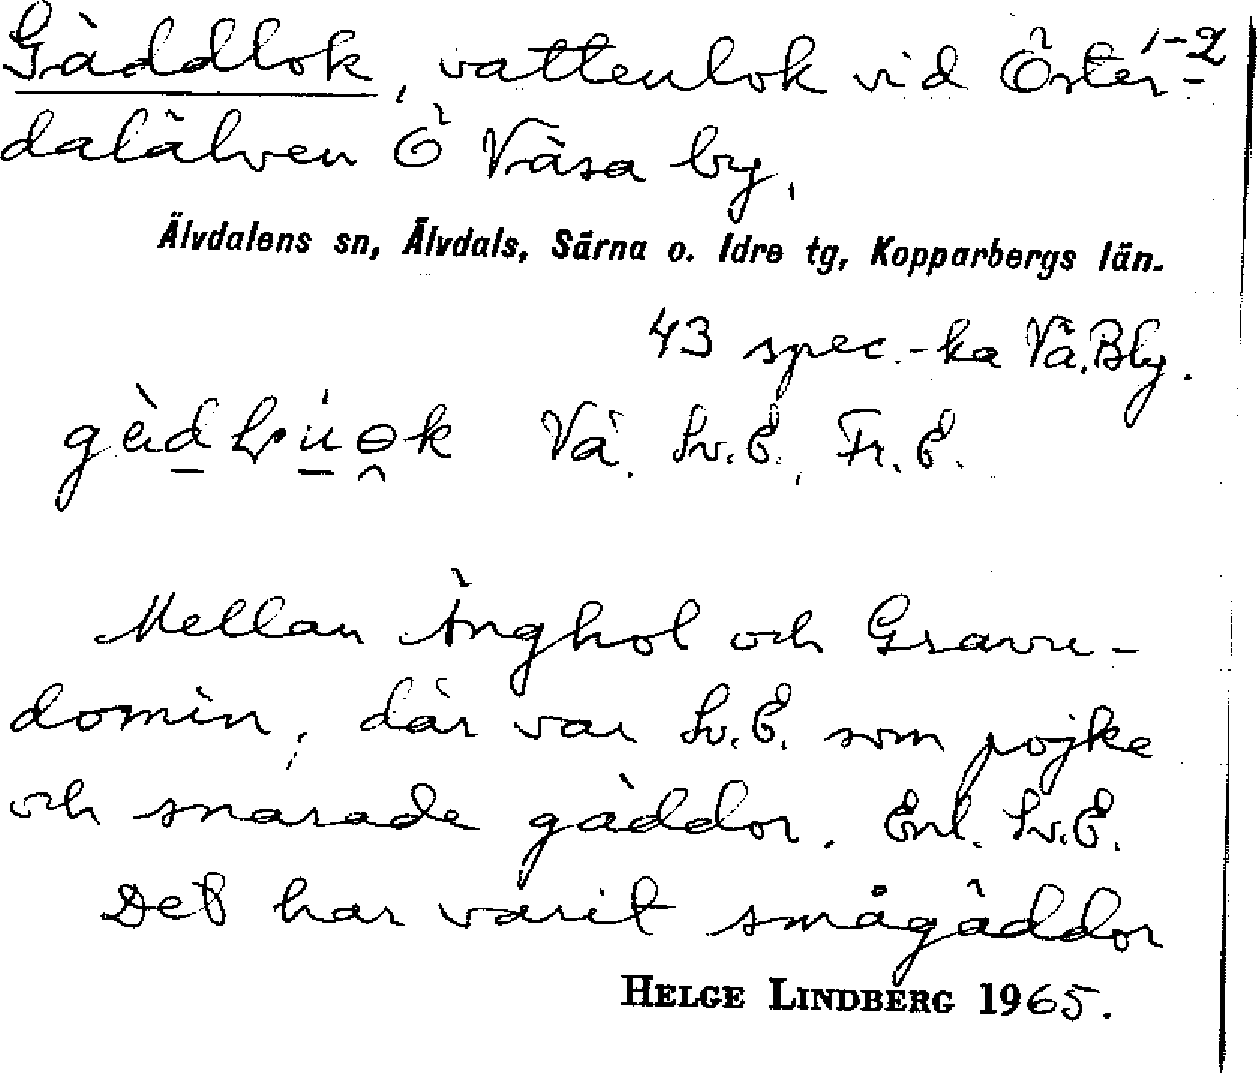 Gäddlok, vattenlok vid Öster- 1-2
dalälven Ö Väsa by,
Älvdalens sn, Älvdals, Särna o. Idre tg, Kopparbergs län.
43 spec.-ka Vä.Bly.
Vä. Sv.E., Fr.E.
Mellan Änghol och Gravu-
domin, där var Sv.E. som pojke
och snarade gäddor. Enl. Sv.E.
Det har varit smågäddor
HELGE LINDBERG 1965.